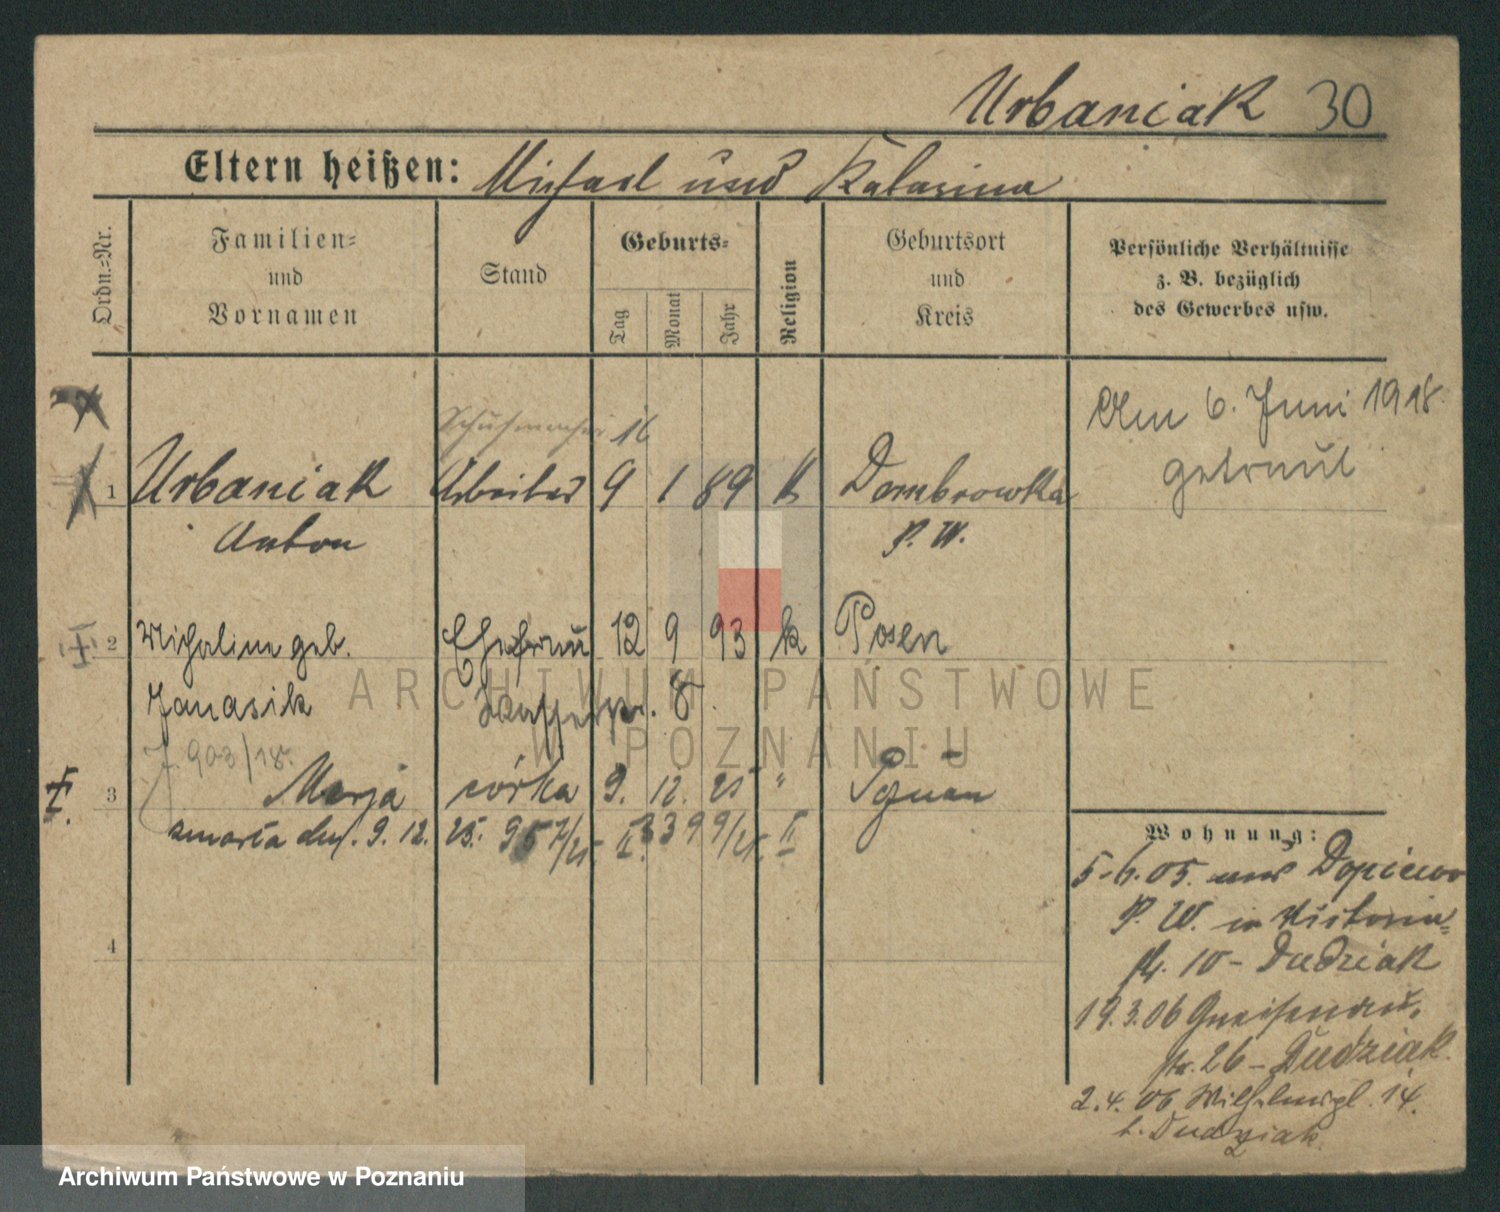 Urbaniak 30
Eltern heißen: Michael und Katarina
Ordn.-Nr.
Familien-
und
Vornamen
Stand
Geburts-
Tag
Monat
Jahr
Religion
Geburtsort
und
Kreis
Persönliche Verhältnisse
z. B. bezüglich
des Gewerbes usw.
Am 6. Juni 1918.
getraut
Schuhmacher 16
1 Urbaniak Arbeiter 9 1 89 k Dombrowka
Anton P. W.
2 Michalina geb. Ehefrau 12 9 93 k Posen
Janasik 8.
J. 903/18.
3 Marja córka 9. 12. 25 " Poznań
zmarła dn. 9. 12. 25.
4
Wohnung:
5.6.05. aus Dopiewo
P. W. in Viktoria-
str. 10 - Dudziak
19.3.06 Gneisenau-
str. 26 - Dudziak.
2.4.06 Wilhelmspl. 14.
b. Dudziak.
ARCHIWUM PAŃSTWOWE
W POZNANIU
Archiwum Państwowe w Poznaniu